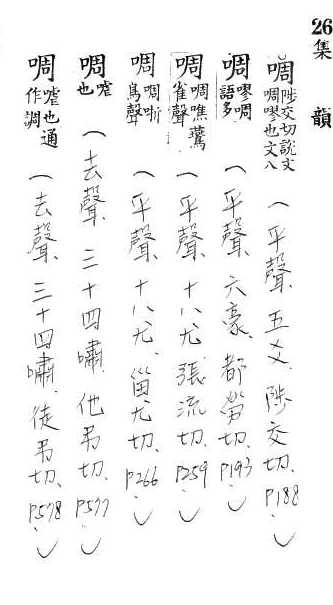 26集韻
啁陟交切說文啁嘐也文八(平聲、五爻、陟交切、P.188
啁嘐啁語多(平聲、六豪、都勞切、P.193
啁啁噍鷦雀聲(平聲、十八尤、張流切、P.259
啁啁哳鳥聲(平聲、十八尤、甾尤切、P.266
啁嘘也(去聲、三十四嘯、他弔切、P.577
啁嘘也通作調(去聲、三十四嘯、徒弔切、P.578